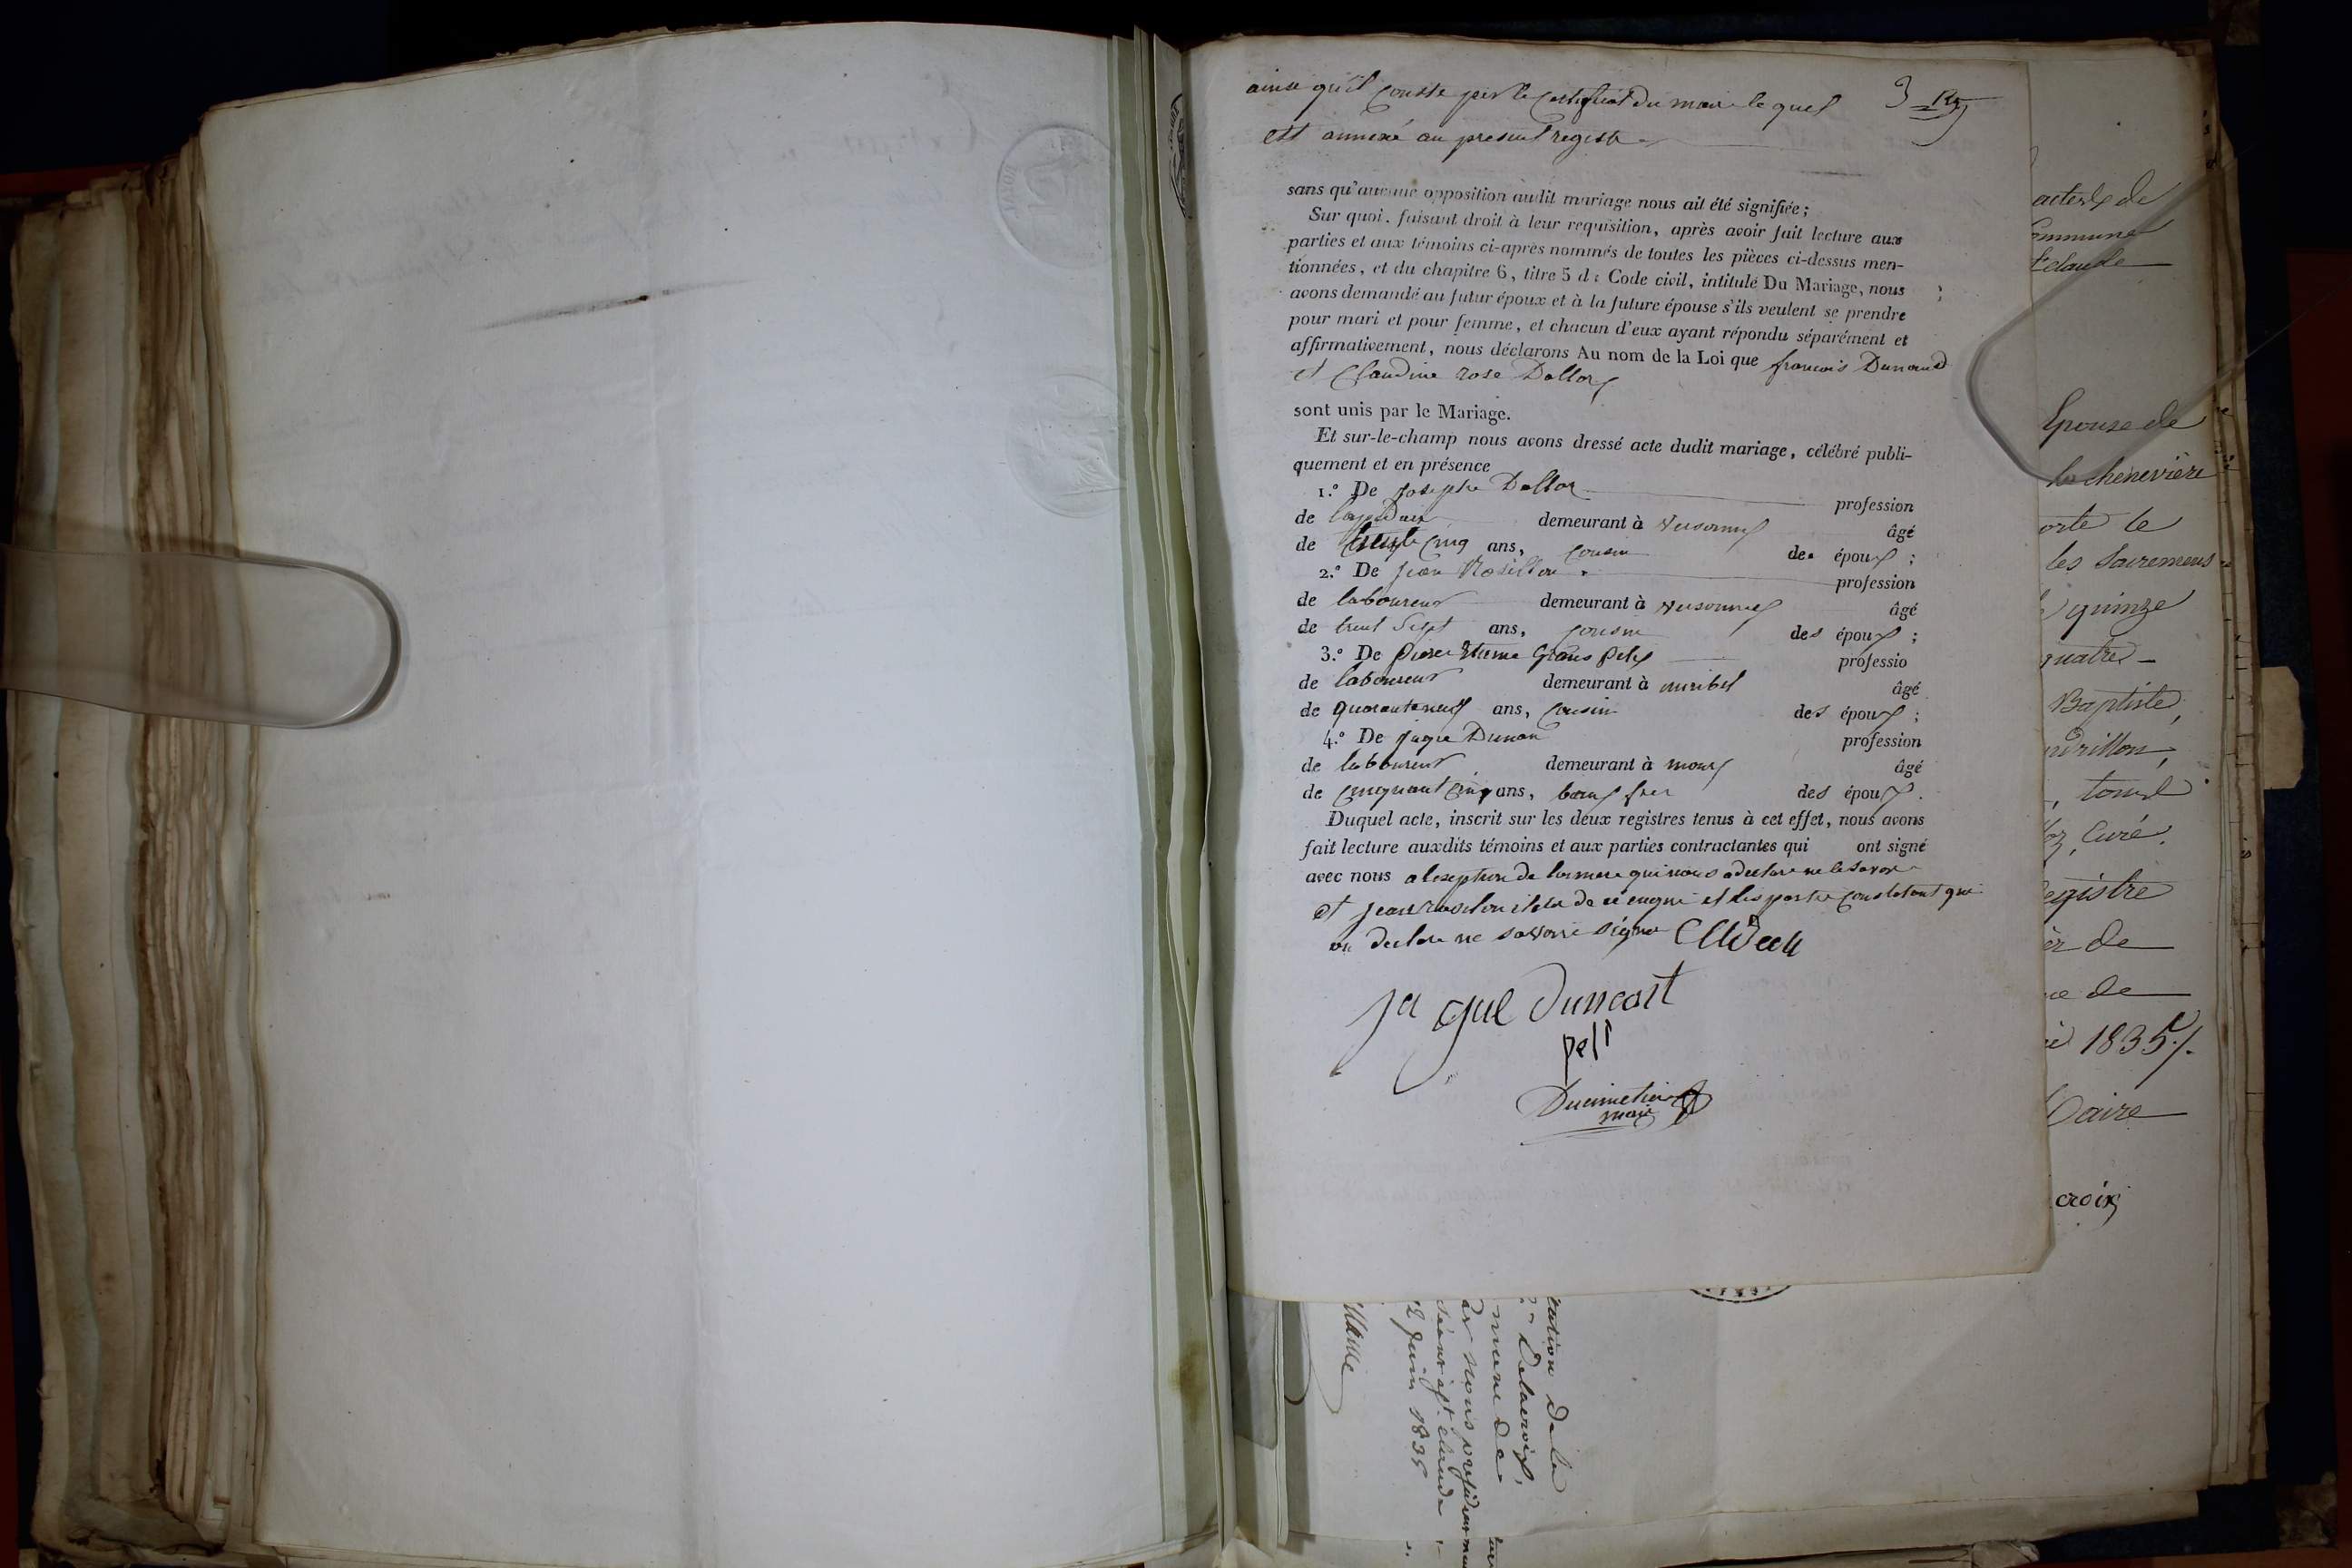 ainse qu'il conste par le certificat du maire le quel 3
est annexé au present registre
sans qu'aucune opposition audit mariage nous ait été signifiée;
Sur quoi, faisant droit à leur requisition, après avoir fait lecture aux
parties et aux témoins ci-après nommés de toutes les pièces ci-dessus men-
tionnées, et du chapitre 6, titre 5 du Code civil, intitulé Du Mariage, nous
avons demandé au futur époux et à la future épouse s'ils veulent se prendre
pour mari et pour femme, et chacun d'eux ayant répondu séparément et
affirmativement, nous déclarons Au nom de la Loi que françois Dunand
et Claudine rose Dalloz
sont unis par le Mariage.
Et sur-le-champ nous avons dressé acte dudit mariage, célébré publi-
quement et en présence
1.° De Josephe Dalloz profession
de lapidaire demeurant à âgé
de cinq ans, cousin des époux;
2.° De Jean profession
de laboureur demeurant à âgé
de trent sept ans, cousin des époux;
3.° De pierre profession
de laboureur demeurant à âgé
de quarante neuf ans, cousin des époux;
4.° De Jaque Dunan profession
de laboureur demeurant à âgé
de cinquant cinq ans, frer des époux.
Duquel acte, inscrit sur les deux registres tenus à cet effet, nous avons
fait lecture auxdits témoins et aux parties contractantes qui ont signé
avec nous a lexseption de la mere qui nous a declare ne le savoir
et Jean de et les partie qui
on declare ne savoir signer
Ja que
pelt
Ducimetier
maire
acte de
commune
Claude
Epouse de
la chenevière
orte le
les Sacremens
quinze
quatre
Baptiste,
tome
Curé.
egistre
de
de
1835./.
Maire
croix
ration de la
Delacroix,
mune de
par nous président
séant à St. claude
12 Juin 1835